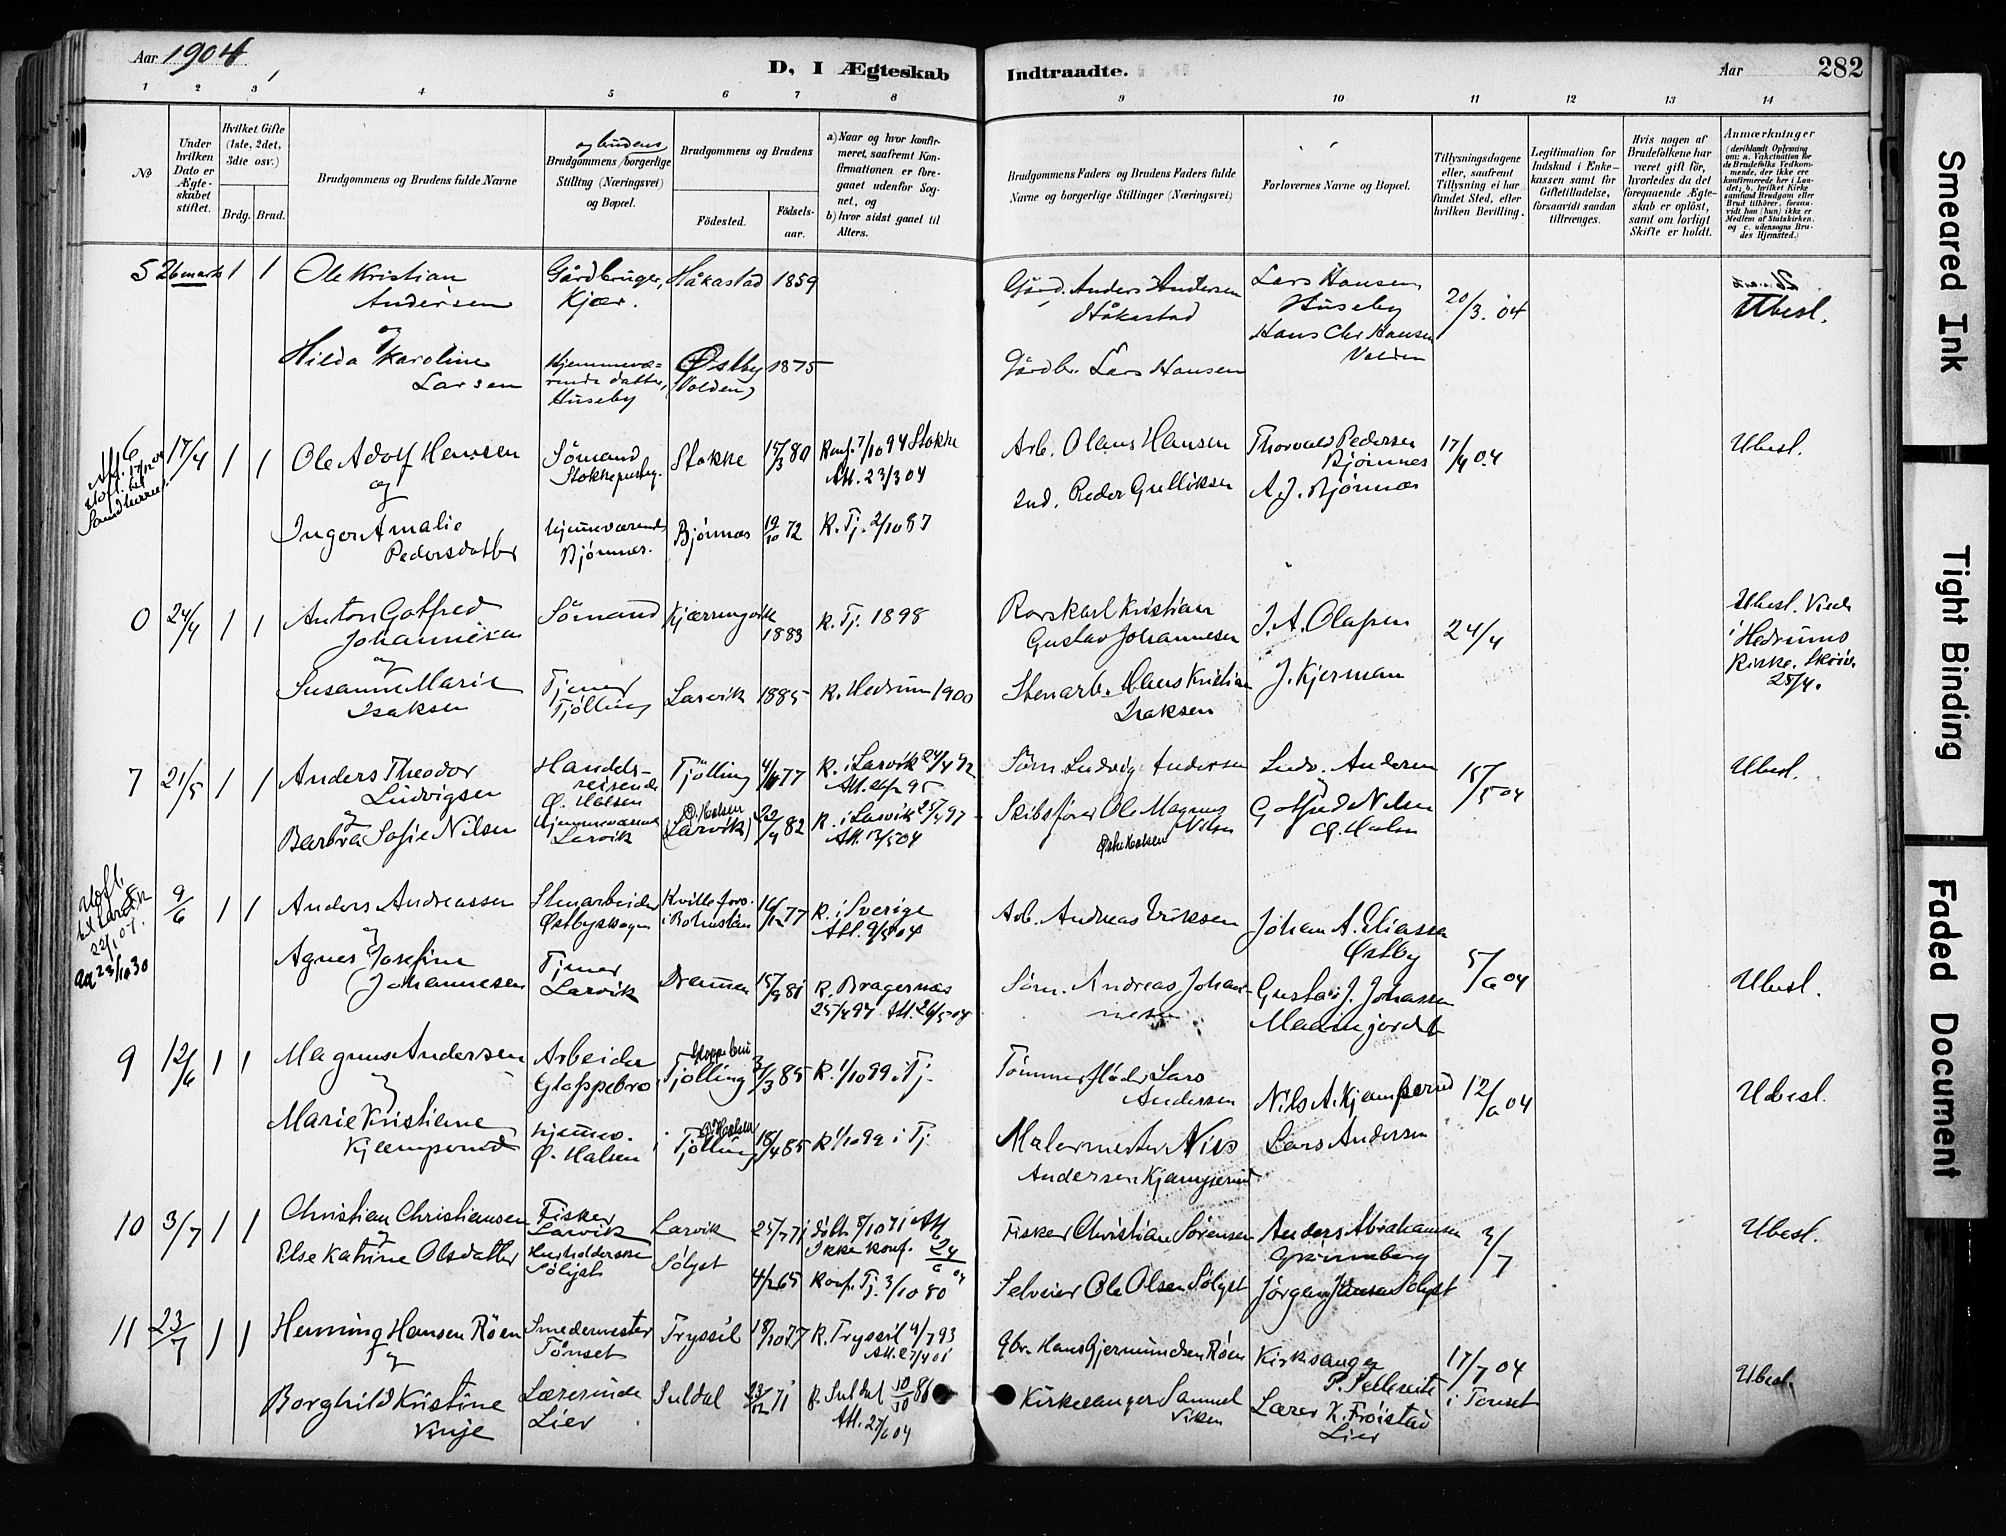 Aar 1904
D, I Ægteskab Indtraadte.
Aar 282
1 2 3 4 5 6 7 8 9 10 11 12 13 14
No
Under hvilken Dato er Ægteskabet stiftet.
Hvilket Gifte (1ste, 2det, 3die osv.)
Brdg. Brud.
Brudgommens og Brudens fulde Navne
og brudens
Brudgommens borgerlige Stilling (Næringsvei) og Bopæl.
Brudgommens og Brudens
Fødested.
Fødselsaar.
a) Naar og hvor konfirmeret, saafremt Konfirmationen er foregaaet udenfor Sognet, og
b) hvor sidst gaaet til Alters.
Brudgommens Faders og Brudens Faders fulde Navne og borgerlige Stillinger (Næringsvei)
Forlovernes Navne og Bopæl.
Tillysningsdagene eller, saafremt Tillysning ei har fundet Sted, efter hvilken Bevilling.
Legitimation for Indskud i Enkekassen samt for Giftetilladelse, forsaavidt saadan tiltrænges.
Hvis nogen af Brudefolkene har været gift før, hvorledes da det foregaaende Ægteskab er opløst, samt om lovligt Skifte er holdt.
Anmærkninger (deriblandt Oplysning om: a. Vakcination for de Brudefolks Vedkommende, der ikke ere konfirmerede her i Landet; b. hvilket Kirkesamfund Brudgom eller Brud tilhører, forsaavidt han (hun) ikke er Medlem af Statskirken, og c. udensogns Brudes Hjemsted.)
5 26 marts 1 1 Ole Kristian Gårdbruger, Håkastad 1859 Gård. Anders Andersen Lars Hansen
Andersen Kjær. Håkastad Huseby 20/3. 04 Ubesl.
og Hans Chr Hansen
Hilda Karoline Hjemmevæ- Østby 1875 Gårdbr. Lars Hansen Volden
Larsen rende datter, (Volden)
Huseby
6 17/4 1 1 Ole Adolf Hansen Sömand Stokke 15/3 80 Konf. 7/10 94 Stokke Arb. Olaus Hansen Thorvald Pedersen 17/4 04 Ubesl.
og Att. 23/3 04 Bjønnes
Ind. Peder Gulliksen A. J. Bjønnes
Inger Amalie Hjemmeværende Bjønnes 19/10 72 K. Tj. 2/10 87
Pedersdatter Bjønnes.
0 24/4 1 1 Anton Gotfred Sömand Kjærringvik 1883 K. Tj. 1898 Rorskarl Kristian J. A. Olafsen 24/4 Ubesl. Viede
Johannesen Gustav Johannesen i Hedrums
og Kirke.
Susanne Marie Tjener Larvik 1885 K. Hedrum 1900 Stenarb. Hans Kristian J. Kjerman 25/4.
Isaksen Tjölling Isaksen
7 21/5 1 1 Anders Theodor Handels- Tjölling 4/11 77 K. i Larvik 24/4 92 Søm. Ludvig Andersen Ludv. Andersen 15/5 04 Ubesl.
Ludvigsen reisende
og Ø. Halsen Ø. Halsen
Barbra Sofie Nilsen Hjemmeværende (Larvik) 22/4 82 K. i Larvik 25/4 97 Skibsfører Ole Magnus Gotfred Nilsen
Larvik Att. 13/5 04 Nilsen Ø. Halsen
Østre Halsen
8 9/6 1 1 Anders Andreassen Stenarbeider Kville fors. 16/12 77 K. i Sverige Arb. Andreas Eriksen Johan A. Eliassen
Østbyskogen i Bohuslän Att. 9/5 04 Østby
og
Agnes Josefine Tjener Drammen 15/9 81 K. Bragernæs Søm. Andreas Johan- Gustav J. Johansen 5/6 04 Ubesl.
Johannesen Larvik 25/4 97 Att. 26/5 04 nesen
9 12/6 1 1 Magnus Andersen Arbeider Gloppebro
og Gloppebro Tjölling 3/3 85 K. 1/10 99 i Tj. Tömmerfløder Lars
Andersen Nils A. Kjamperud 12/6 04 Ubesl.
Marie Kristiane hjemmev. Ø. Halsen
Kjæmperud Ø. Halsen Tjölling 18/4 85 K 1/10 99 i Tj. Malermester Nils Lars Andersen
Andersen Kjamperud
10 3/7 1 1 Christian Christiansen Fisker Larvik 25/7 71 døbt 8/10 71 Att. Fisker Christian Sørensen Anders Abrahamsen 3/7 Ubesl.
og Larvik Ikke konf. 24/6 04
Else Katrine Olsdatter Husholderske Sölyst
Sölyst 4/2 65 Konf. Tj. 3/10 80 Selveier Ole Olsen Sölyst Jørgen Jansen Sölyst
11 23/7 1 1 Henning Hansen Røen Smedemester Tryssil 18/10 77 K. Tryssil 9/7 93 Gbr. Hans Gjermundsen Røen Kirkesanger 17/7 04
og Tönset Att. 27/4 01 i Tönset Ubesl.
Borghild Kristine Lærerinde Suldal 23/12 71 K. Suldal 10/10 86 Kirkesanger Samuel Lærer K. Frøistad
Lier Att. 27/6 04 Lier
Smeared Ink
Tight Binding
Faded Document